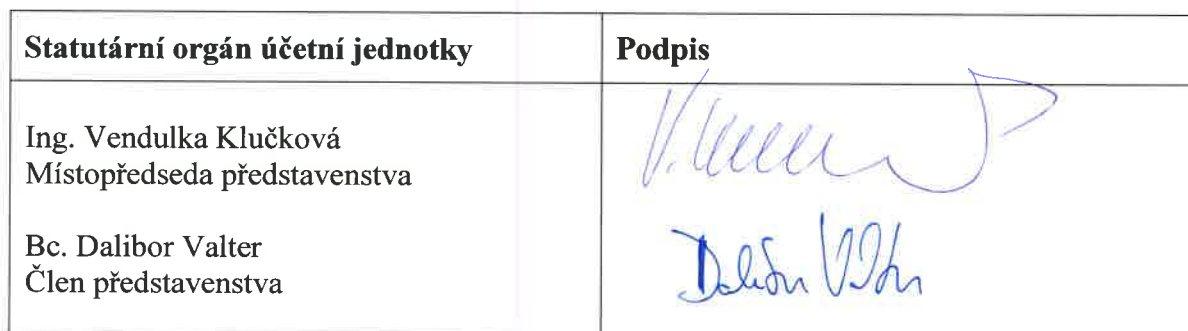 Statutární orgán účetní jednotky
Podpis
Ing. Vendulka Klučková
Místopředseda představenstva
Bc. Dalibor Valter
Člen představenstva